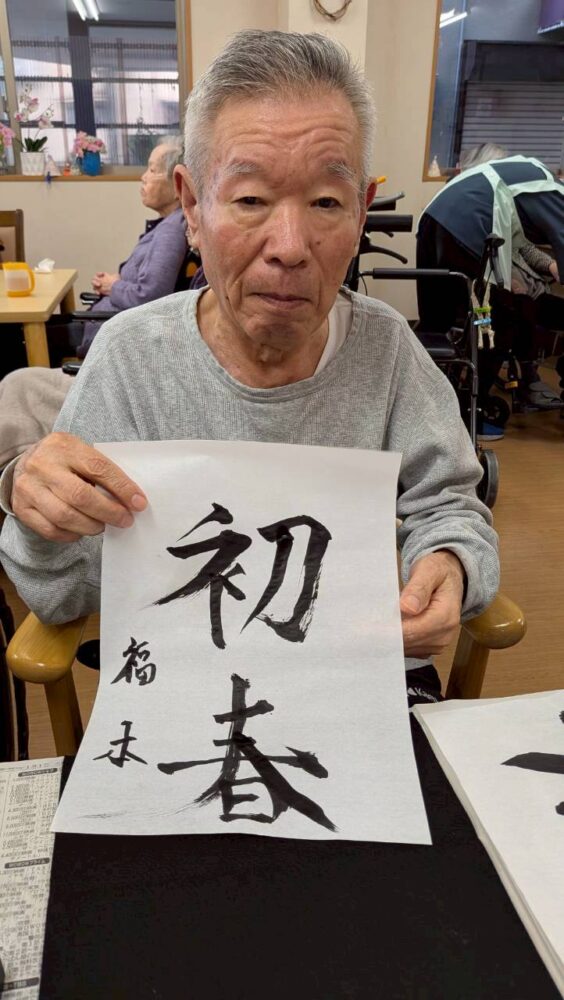 初春
福本